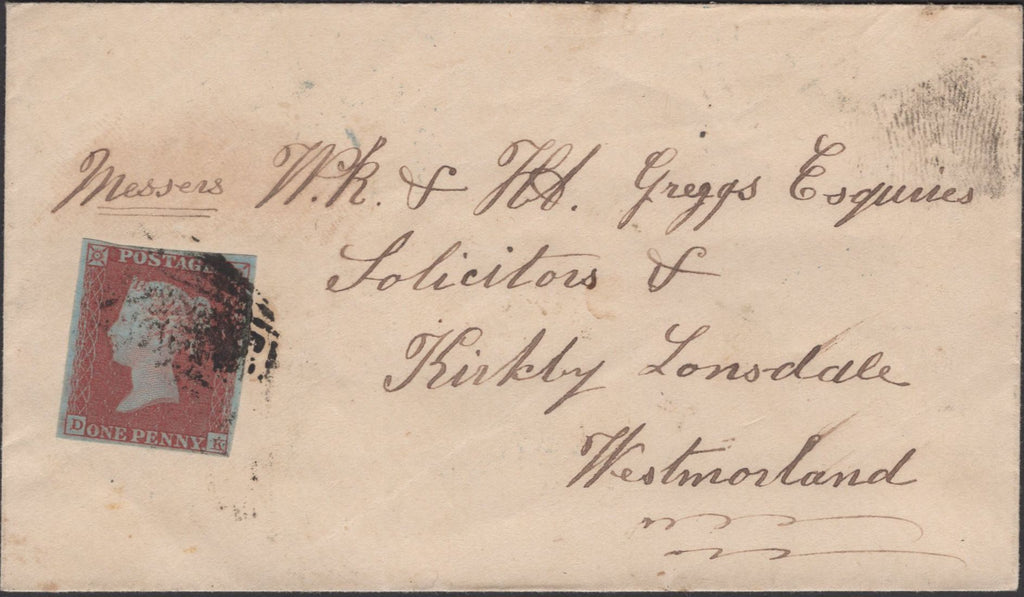 Messers W.R. & Hd. Greggs Esquires
Solicitors &
Kirkby Lonsdale
Westmorland
POSTAGE
D ONE PENNY K